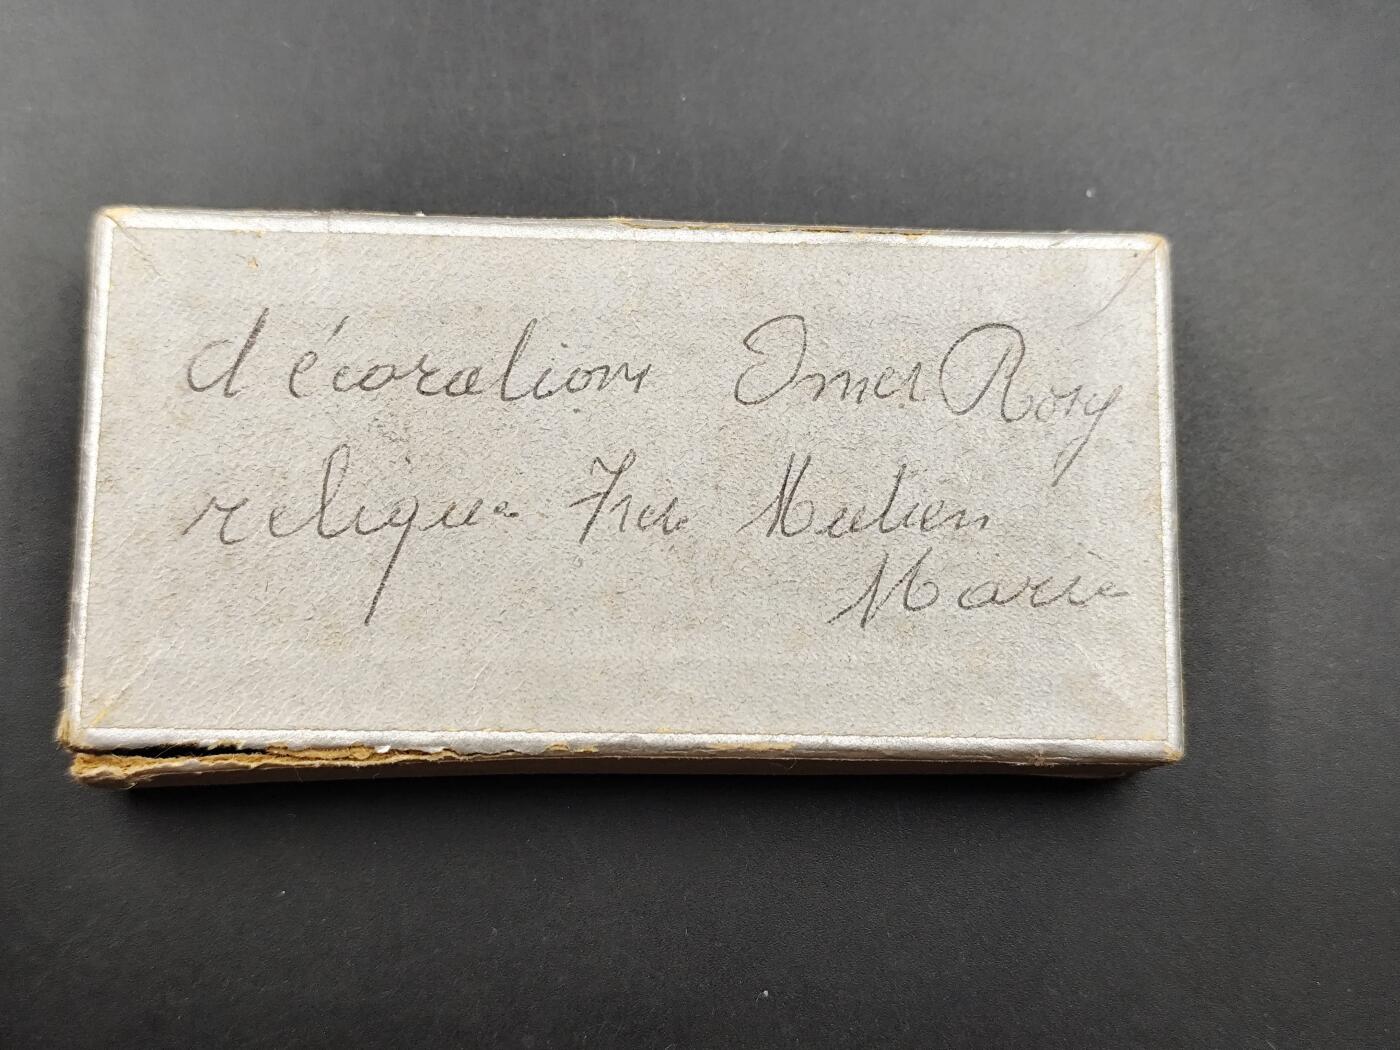 décorations Omer Rosy
relique Frère Mutien
Marie